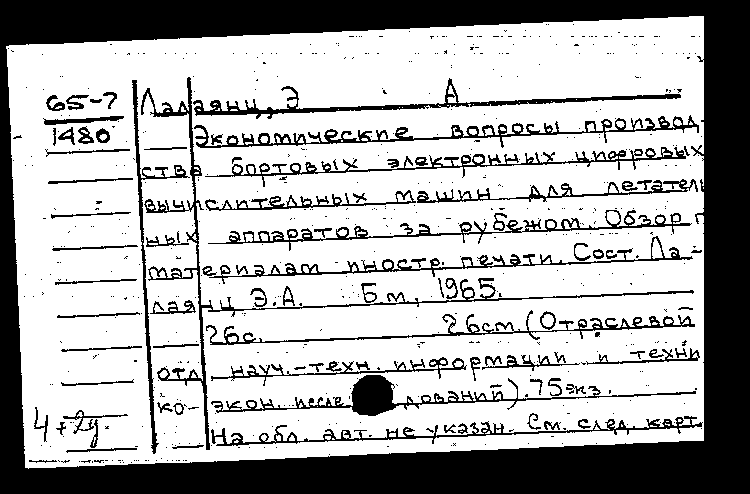 65-7
1480
Лалаянц, Э А
Экономические вопросы производ-
ства бортовых электронных цифровых
вычислительных машин для летатель
ных аппаратов за рубежом. Обзор п
материалам иностр. печати. Сост. Ла-
лаянц Э.А. Б.м., 1965.
26с. 26см. (Отраслевой
отд. науч.-техн. информации и техни
ко-экон. иссле дований). 75 экз.
На обл. авт. не указан. См. след. карт.
4+2у.